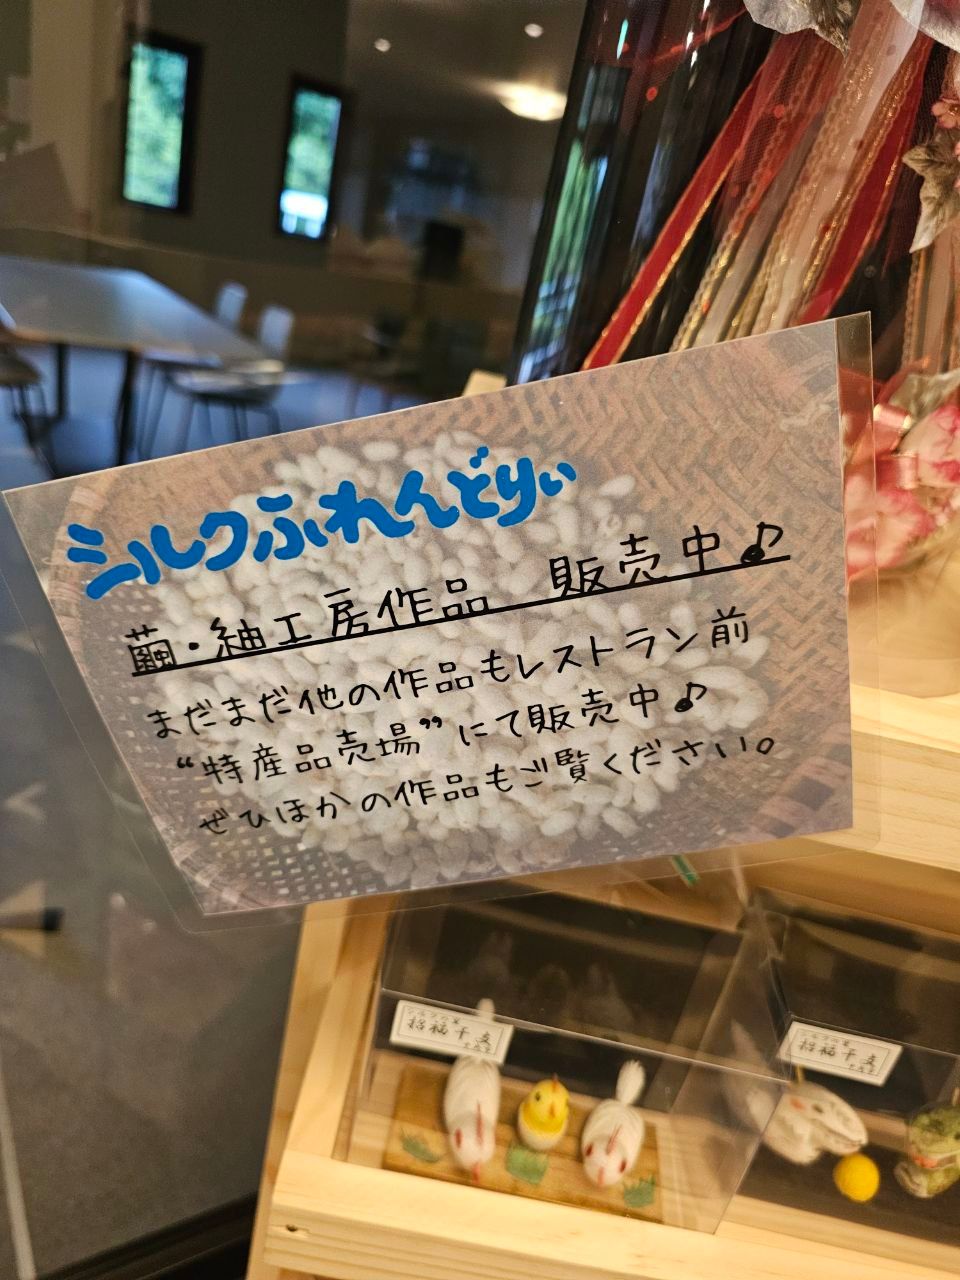 シルクふれんどりぃ
繭・紬工房作品 販売中♪
まだまだ他の作品もレストラン前
“特産品売場”にて販売中♪
ぜひほかの作品もご覧ください。
招福干支
招福干支